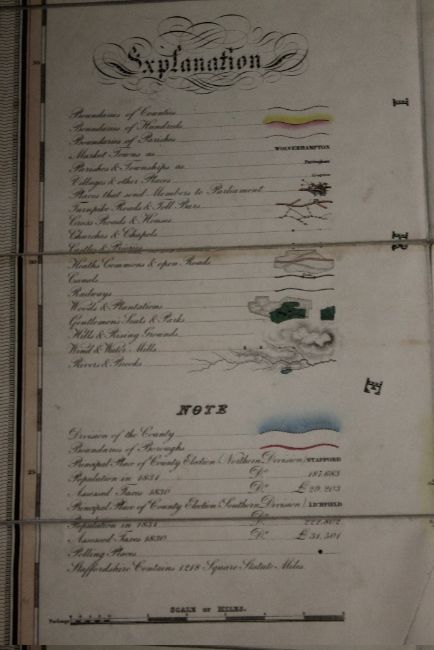 Explanation
Boundaries of Counties
Boundaries of Hundreds
Boundaries of Parishes
Market Towns as WOLVERHAMPTON
Parishes & Townships as
Villages & other Places
Places that send Members to Parliament
Turnpike Roads & Toll Bars
Cross Roads & Houses
Churches & Chapels
Castles & Priories
Heaths Commons & open Roads
Canals
Railways
Woods & Plantations
Gentlemens Seats & Parks
Hills & Rising Grounds
Wind & Water Mills
Rivers & Brooks
NOTE
Division of the County
Boundaries of Boroughs
Principal Place of County Election (Northern Division) STAFFORD
Population in 1831 Do. 187,683
Assessed Taxes 1830 Do. £ 29,203
Principal Place of County Election (Southern Division) LICHFIELD
Population in 1831 Do. 222,802
Assessed Taxes 1830 Do. £ 31,501
Polling Places
Staffordshire Contains 1218 Square Statute Miles.
SCALE OF MILES.
Furlongs
I
R
E